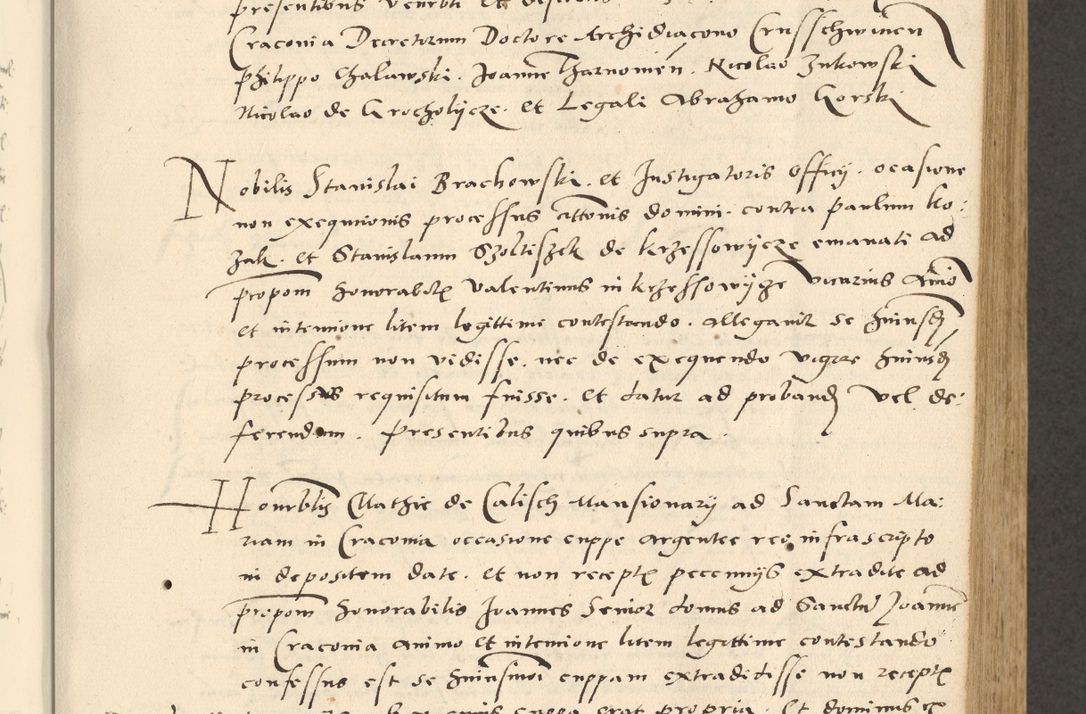 presentibus venerbli et
Craconia Decretorum Doctore Archidiacono Crusschwicen
Philippo Chalawski. Joanne Tharnowien. Nicolao Zukowski
Nicolao de Grocholycze. et Legali Abrahamo Gorski
Nobilis Stanislai Brachowski. et Instigatoris officy. ocasione
non exequutionis processus Actoris domini. contra paulum Ko:
zak. et Stanislaum Szoltiszek de krzessowycze emanati ad
propom Honorabilis Valentinus in krzessowycze vicarius Animo
et intentione litem legittime contestando. allegavit se huiusdi
processum non vidisse. nec de exequendo vigore huiusdi
processus requisitum fuisse. et datur ad proband vel de:
ferendum. Presentibus quibus supra.
Honorblis Mathie de Calisch Mansionary ad Sanctam Ma:
riam in Craconia occasione cuppe argentee reo infrascripto
in depositum date. et non recepte pecuniis extradite ad
propom Honorabilis Joannes Senior domus ad Sanctu Joanne
in Craconia animo et intentione litem legittime contestando
confessus est se huiusmoi cuppam extradidisse non recepte
cuppa erat propria. Et dominus